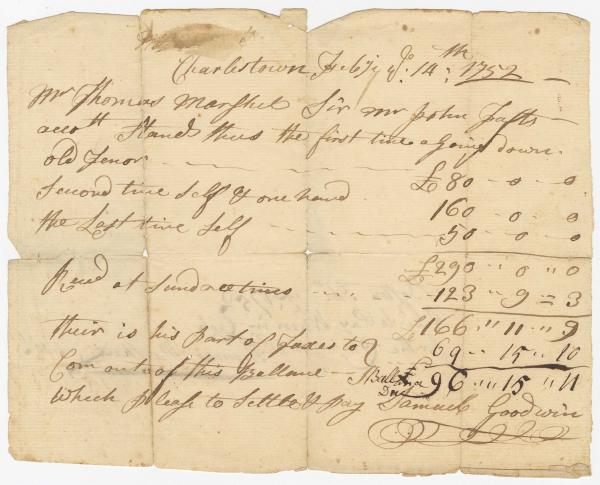 Charlestown Feby ye: 14th: 1752
Mr Thomas Marshel Sir Mr John Tufts
accott Stands thus the first time a Going down
old Tenor £80 - 0 - 0
Second time Self & one hand 160 0 0
the Last time Self 50 0 0
£290 " 0 " 0
Recd at Sundree times 123 " 9 = 3
£166 " 11 " 9
their is his Part of to 69 " 15 " 10
Com out of this Ballance Ballance Due £96 " 15 " 11
Which please to Settle & pay Samuel Goodwin